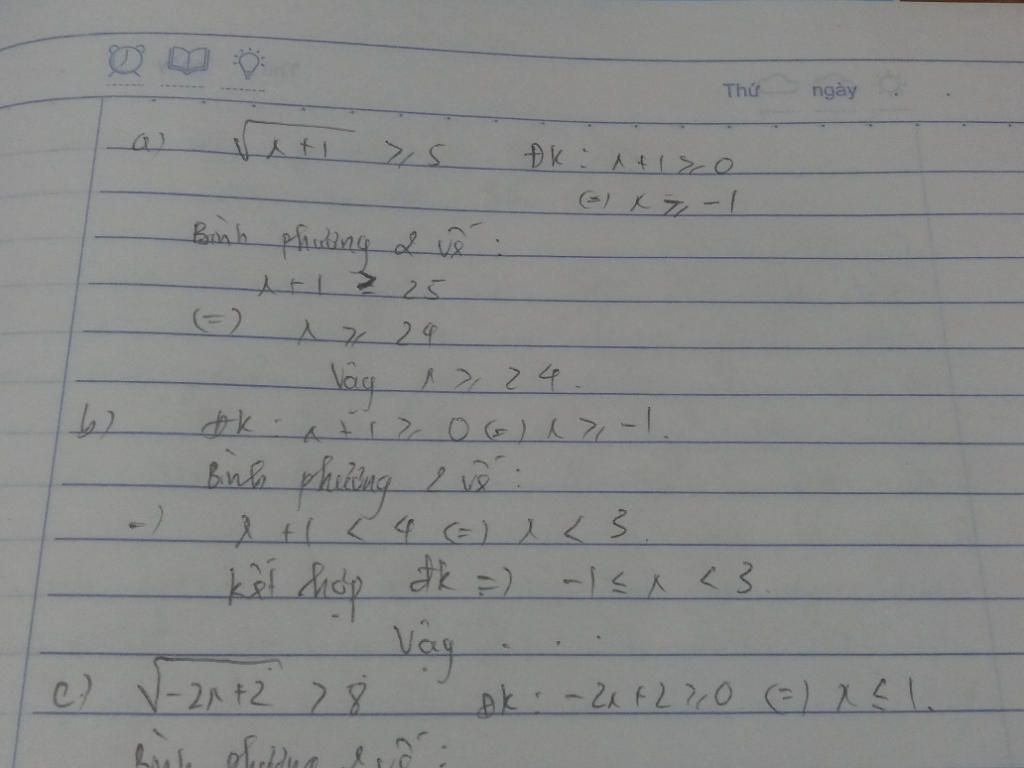 Thứ ngày
a) √(x+1) ≥ 5 ĐK : x+1 ≥ 0
(=) x ≥ -1
Bình phương 2 vế :
x+1 ≥ 25
(=) x ≥ 24
Vậy x ≥ 24.
b) ĐK : x+1 ≥ 0 (=) x ≥ -1.
Bình phương 2 vế :
=) x+1 < 4 (=) x < 3.
kết hợp đk =) -1 ≤ x < 3.
Vậy . . .
c) √(-2x+2) > 8 ĐK : -2x+2 ≥ 0 (=) x ≤ 1.
Bình phương 2 vế :